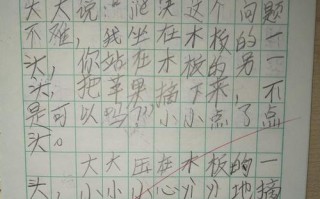 大大说：“解决这个问题
不难，我坐在木板的一
头，你站在木板的另一
头，把苹果摘下来，不
是可以吗？”小小点了点
头。
大大压在木板的一
头，小小小心心地摘